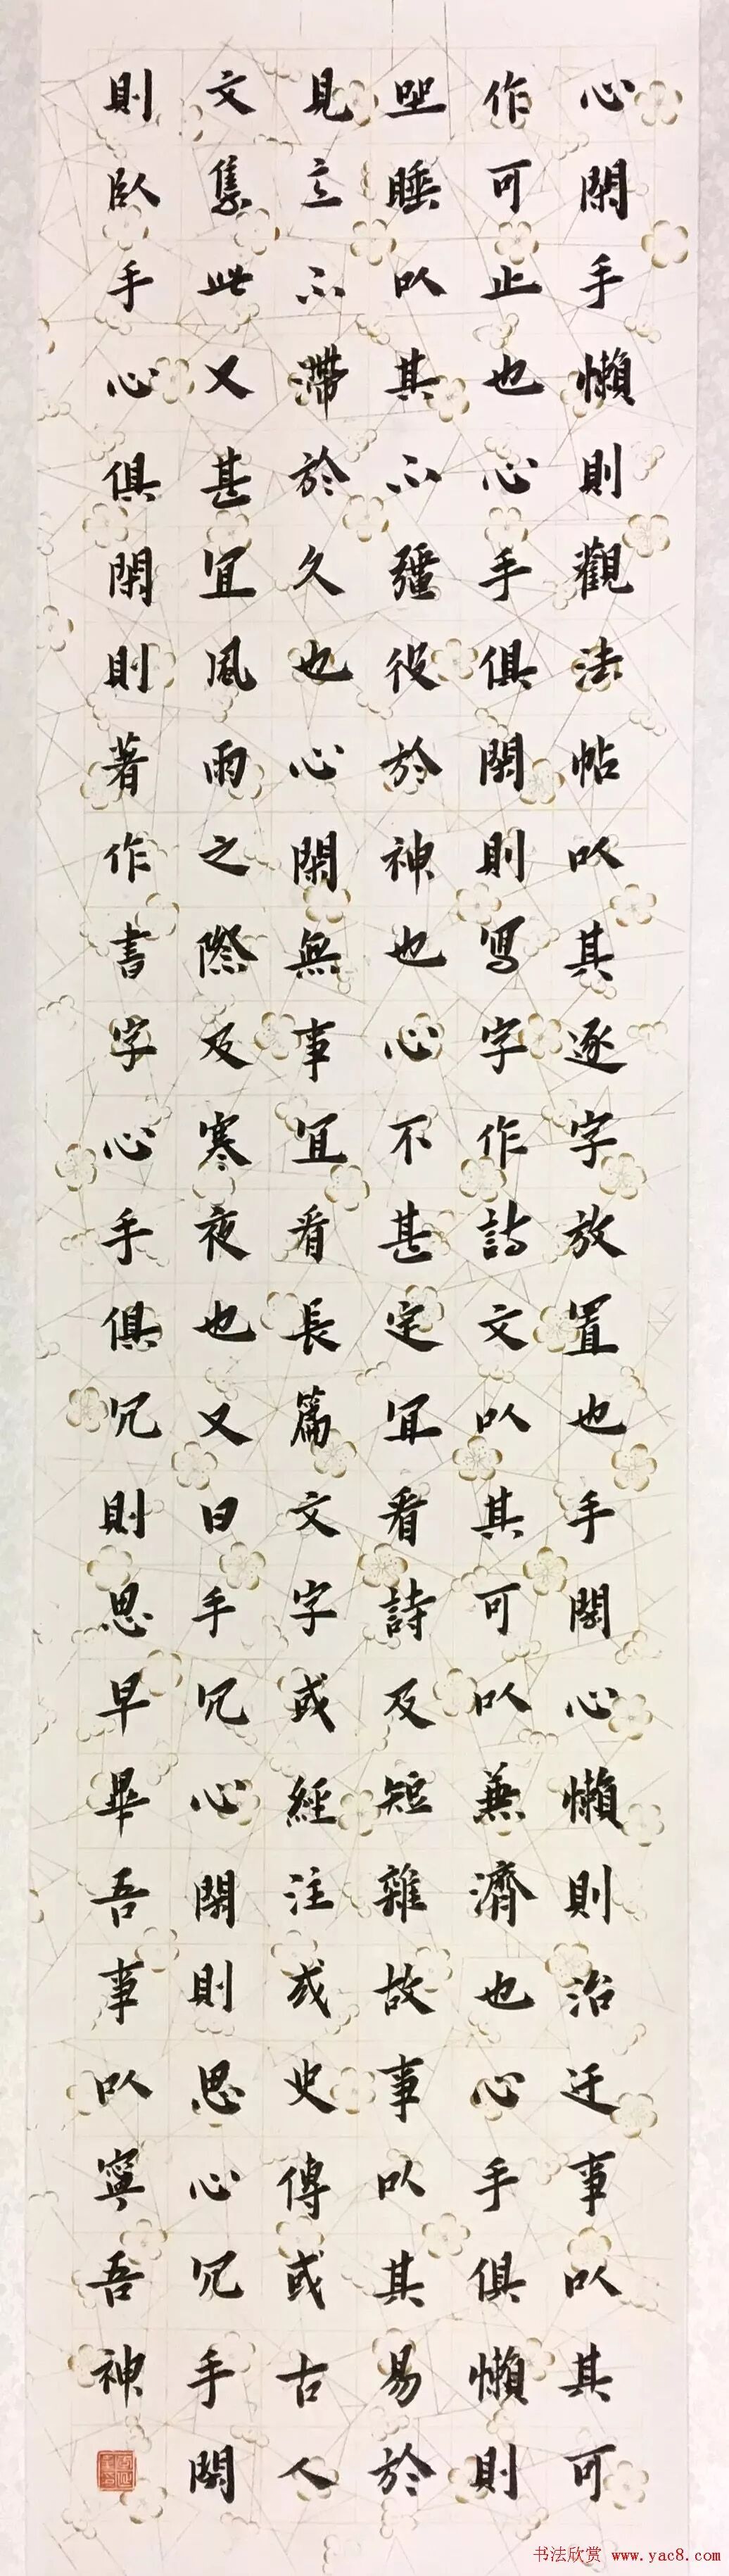 心閑手懶則觀法帖以其逐字放置也手閑心懶則治迂事以其可
作可止也心手俱閑則寫字作詩文以其可以兼濟也心手俱懶則
坐睡以其不彊役於神也心不甚定宜看詩及短雜故事以其易於
見意不滯於久也心閑無事宜看長篇文字或經注或史傳或古人
文集此又甚宜風雨之際及寒夜也又曰手冗心閑則思心冗手閑
則臥手心俱閑則著作書字心手俱冗則思早畢吾事以寧吾神
书法欣赏 www.yac8.com